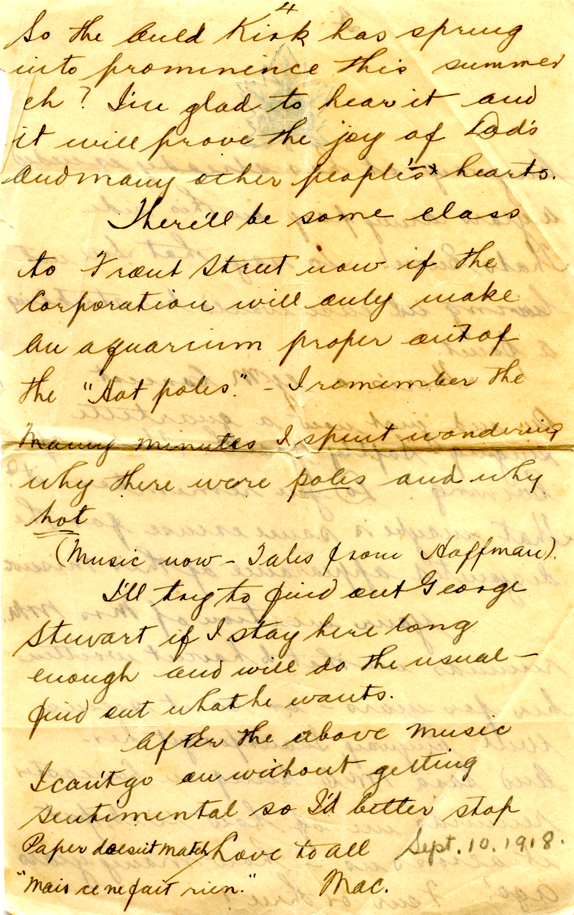 4
So the Auld Kirk has sprung
into prominence this summer
eh? I'm glad to hear it and
it will prove the joy of Dad's
and many other people's hearts.
There'll be some class
to Front Street now if the
Corporation will only make
an aquarium proper out of
the "Hot poles." - I remember the
many minutes I spent wondering
why there were poles and why
hot
(Music now - Tales from Hoffman).
I'll try to find out George
Stewart if I stay here long
enough and will do the usual -
find out what he wants.
After the above music
I can't go on without getting
sentimental so I'd better stop
Paper doesn't match Love to all Sept. 10. 1918.
"Mais ce ne fait rien." Mac.